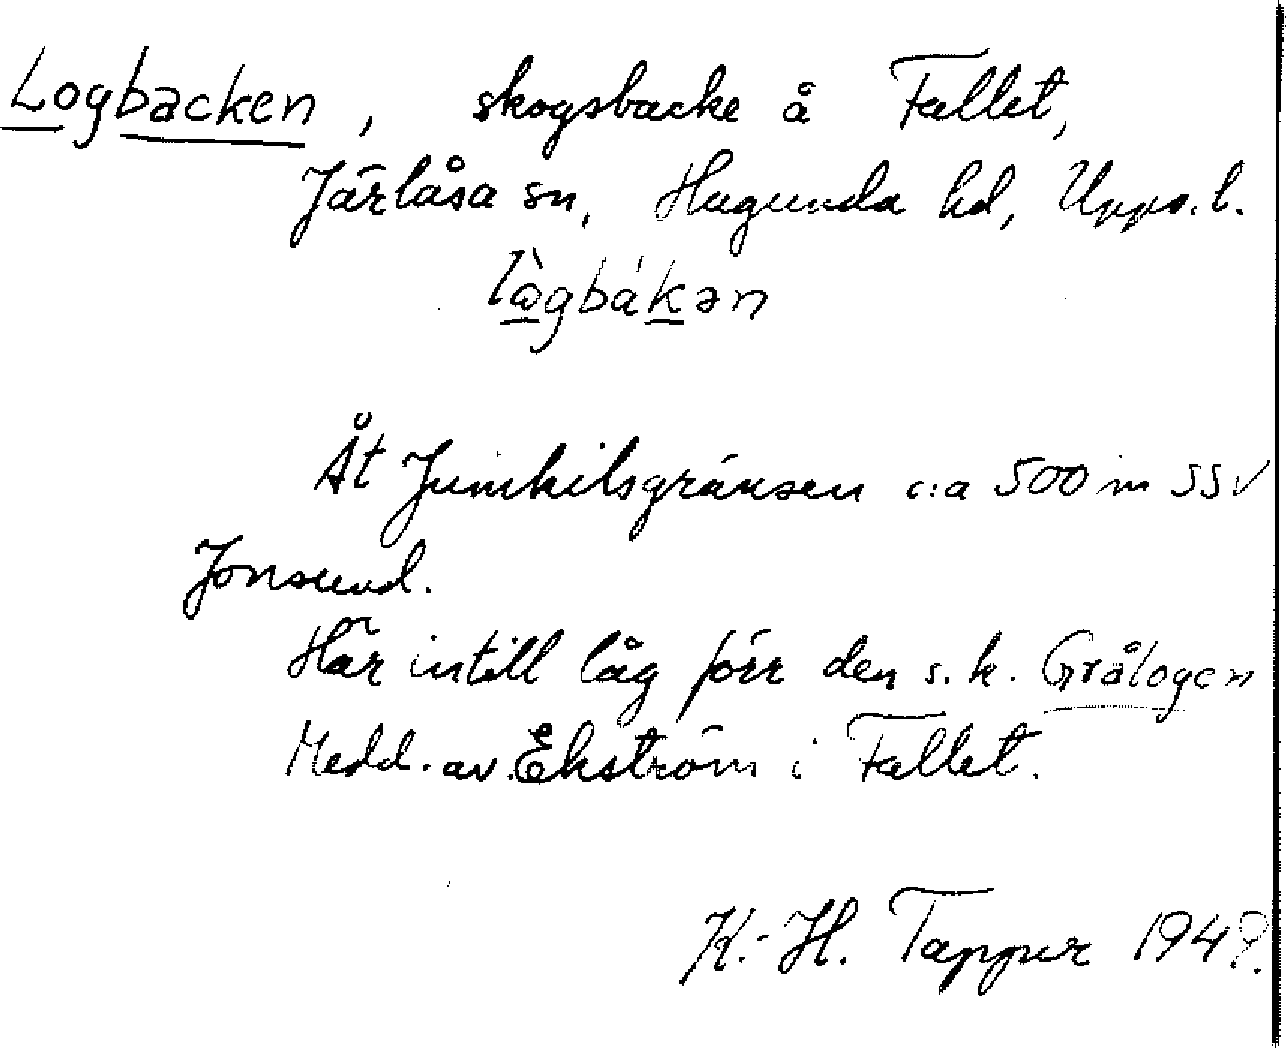 Logbacken, skogsbacke å Fallet,
Järlåsa sn, Hagunda hd, Upps. l.
lògbákən
Åt Jumkilsgränsen c:a 500 m SSV
Jonsund.
Här intill låg förr den s.k. Grålogen
Medd. av Ekström i Fallet.
K.-H. Tappur